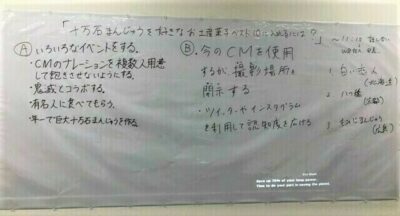 「十万石まんじゅうを好きなお土産菓子ベスト10に入れるには？」
Ⓐいろいろなイベントをする。
・CMのナレーションを複数人用意
して飽きさせないようにする。
・鬼滅とコラボする。
・有名人に食べてもらう。
・年一で巨大十万石まんじゅうを作る。
Ⓑ 今のCMを使用
するが、撮影場所を
開示する
・ツイッターやインスタグラム
を利用して認知度を広げる
1 白い恋人
(北海道)
2 八つ橋
(京都)
3 もみじまんじゅう
(広島)